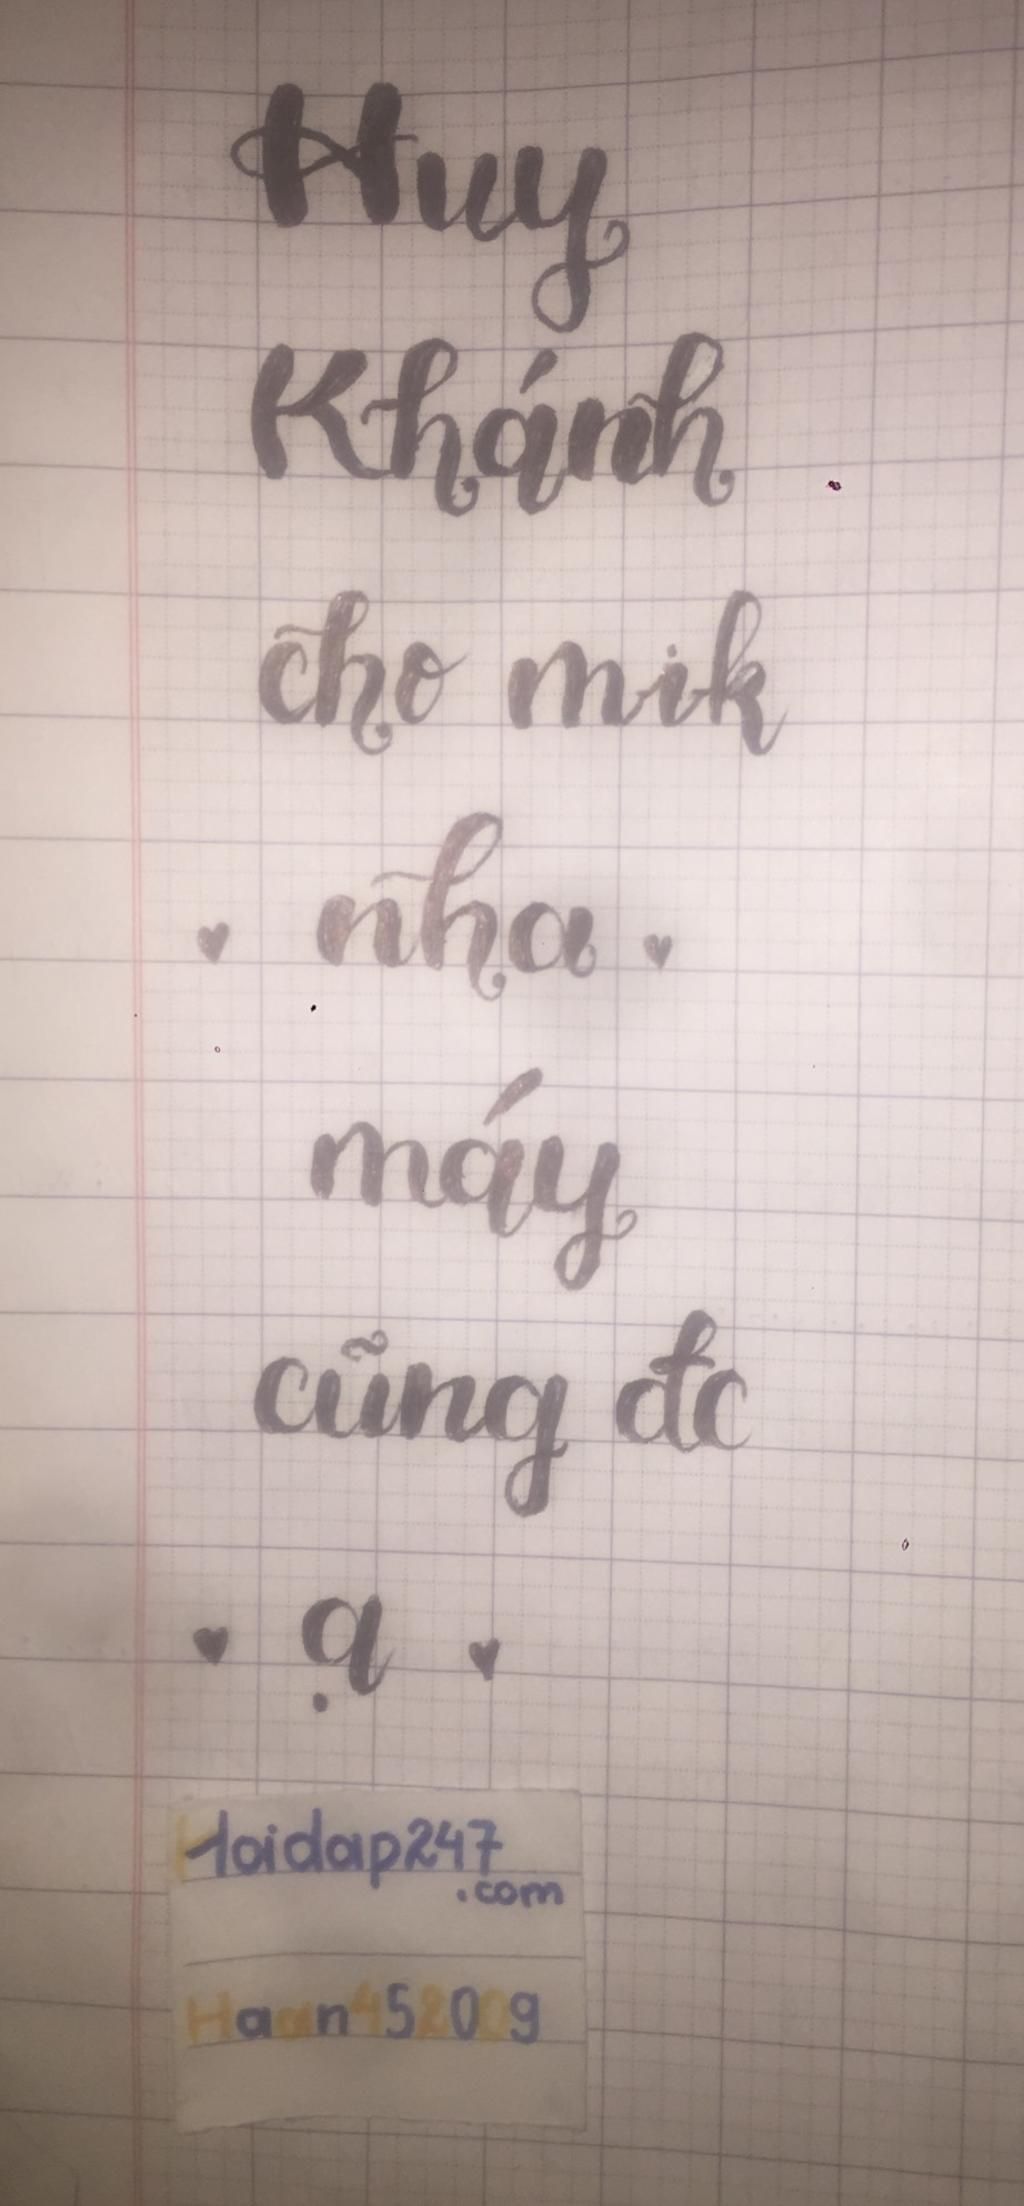 Huy
Khánh
cho mik
nha
máy
cũng đc
ạ
Hoidap247
.com